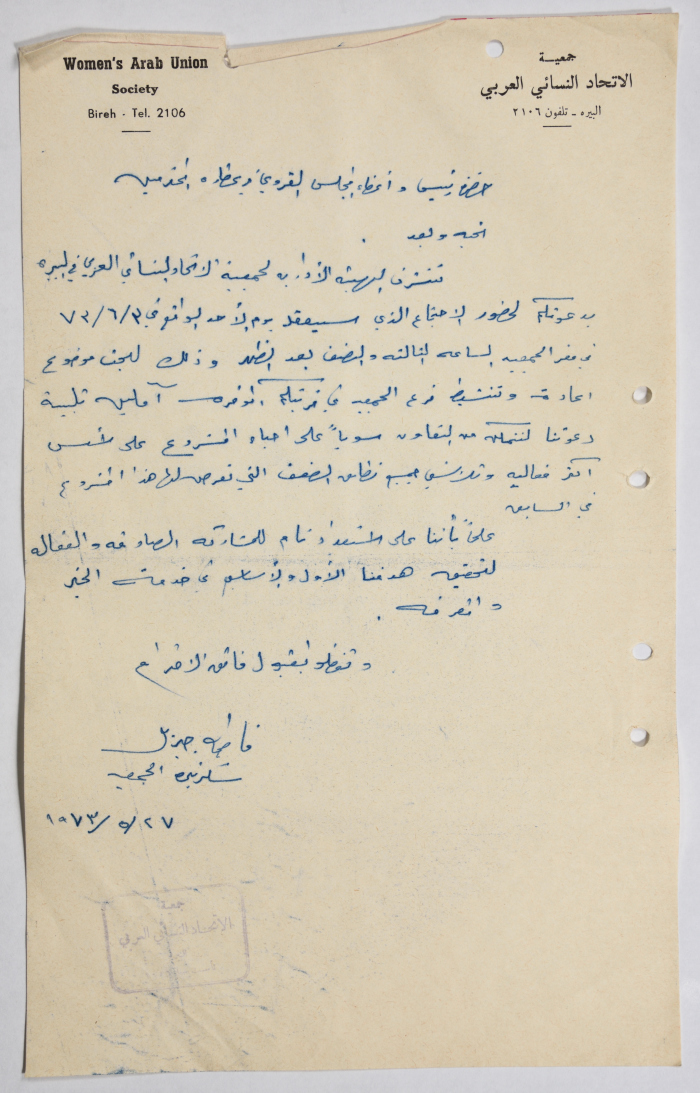 Women's Arab Union
Society
Bireh - Tel. 2106
جمعيـة
الاتحاد النسائي العربي
البيره ـ تلفون ٢١٠٦
حضرة رئيس و أعضاء المجلس القروي ومختاره المحترمين
تحيه وبعد .
تتشرف الهيئة الأداريه لجمعية الاتحاد النسائي العربي في البيره
بدعوتكم لحضور الاجتماع الذي سيعقد يوم الأحد الواقع في ٧٣/٦/٣
في مقر الجمعيه الساعه الثالثه والنصف بعد الظهر وذلك لبحث موضوع
اعادة وتنشيط فرع الجمعيه في قريتكم الموقره آملين تلبية
دعوتنا لنتمكن من التعاون سوياً على احياء المشروع على أسس
أكثر فعاليه وتلاشي جميع نقاط الضعف التي تعرض لها هذا المشروع
في السابق
علماً بأننا على استعداد تام للمشاركه الصادقه والفعاله
لتحقيق هدفنا الأول والأساسي في خدمة الخير
والمعرفه .
وتفضلوا بقبول فائق الاحترام
فاطمه
سكرتيرة الجمعيه
١٩٧٣/٥/٢٧
جمعية
الاتحاد النسائي العربي